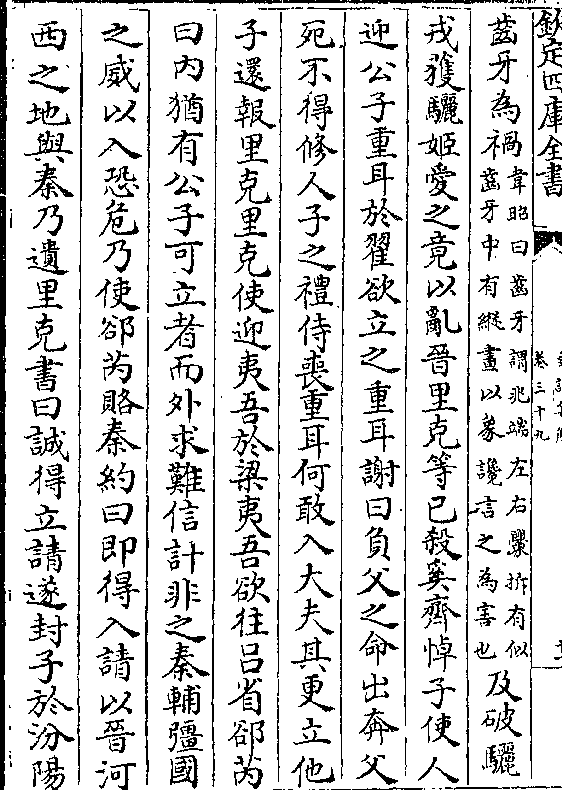 欽定四庫全書
卷三十九
齒牙為禍韋昭曰齒牙謂兆端左右釁拆有似齒牙中有縱畫以象讒言之為害也及破驪
戎獲驪姬愛之竟以亂晉里克等已殺奚齊悼子使人
迎公子重耳於翟欲立之重耳謝曰負父之命出奔父
死不得修人子之禮侍喪重耳何敢入大夫其更立他
子還報里克里克使迎夷吾於梁夷吾欲往呂省郤芮
曰內猶有公子可立者而外求難信計非之秦輔彊國
之威以入恐危乃使郤芮賂秦約曰即得入請以晉河
西之地與秦乃遺里克書曰誠得立請遂封子於汾陽